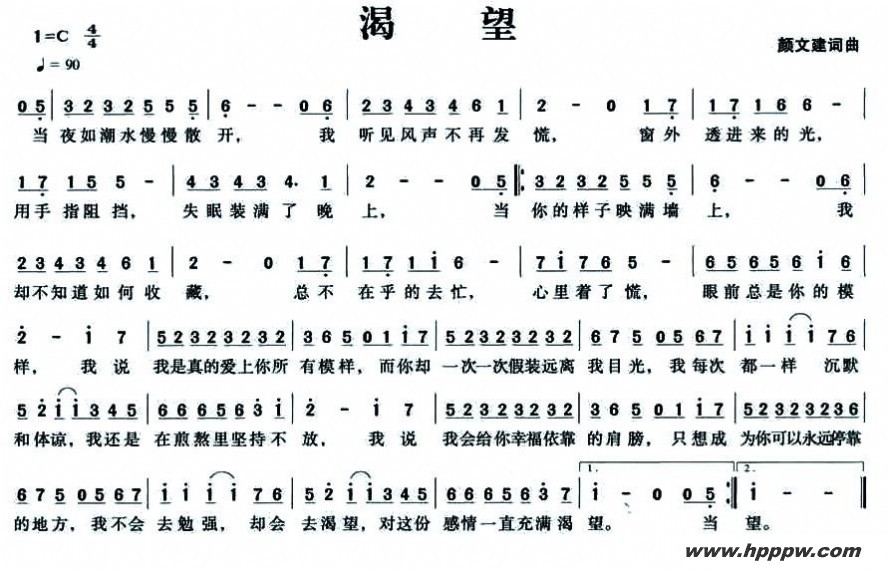 渴 望
1=C 4/4
颜文建词曲
♩= 90
0 5 | 3 2 3 2 5 5 5 5 | 6 - - 0 6 | 2 3 4 3 4 6 1 | 2 - 0 1 7 | 1 7 1 6 6 - |
当 夜如潮水慢慢散 开， 我 听见风声不再发 慌， 窗外 透进来的光，
1 7 1 5 5 - | 4 3 4 3 4· 1 | 2 - - 0 5 |: 3 2 3 2 5 5 5 5 | 6 - - 0 6 |
用手指阻挡， 失眠装满了晚 上， 当 你的样子映满墙 上， 我
2 3 4 3 4 6 1 | 2 - 0 1 7 | 1 7 1 6 - | 7 1 7 6 5 - | 6 5 6 5 6 1 6 |
却不知道如何收 藏， 总不 在乎的去忙， 心里着了慌， 眼前总是你的模
2 - 1 7 | 5 2 3 2 3 2 3 2 | 3 6 5 0 1 1 7 | 5 2 3 2 3 2 3 2 | 3 6 7 5 0 5 6 7 | 1 1 1 1 7 6 |
样， 我说 我是真的爱上你所 有模样，而你却 一次一次假装远离 我目光，我每次 都一样 沉默
5 2 1 1 3 4 5 | 6 6 6 5 6 3 1 | 2 - 1 7 | 5 2 3 2 3 2 3 2 | 3 6 5 0 1 1 7 | 5 2 3 2 3 2 3 6 |
和体谅，我还是 在煎熬里坚持不 放， 我说 我会给你幸福依靠 的肩膀，只想成 为你可以永远停靠
6 7 5 0 5 6 7 | 1 1 1 1 7 6 | 5 2 1 1 3 4 5 | 6 6 6 5 6 3 7 | 1. 1 - 0 0 5 :| 2. 1 - - |
的地方，我不会 去勉强，却会 去渴望，对这份 感情一直充满渴 望。 当 望。
www.hpppw.com